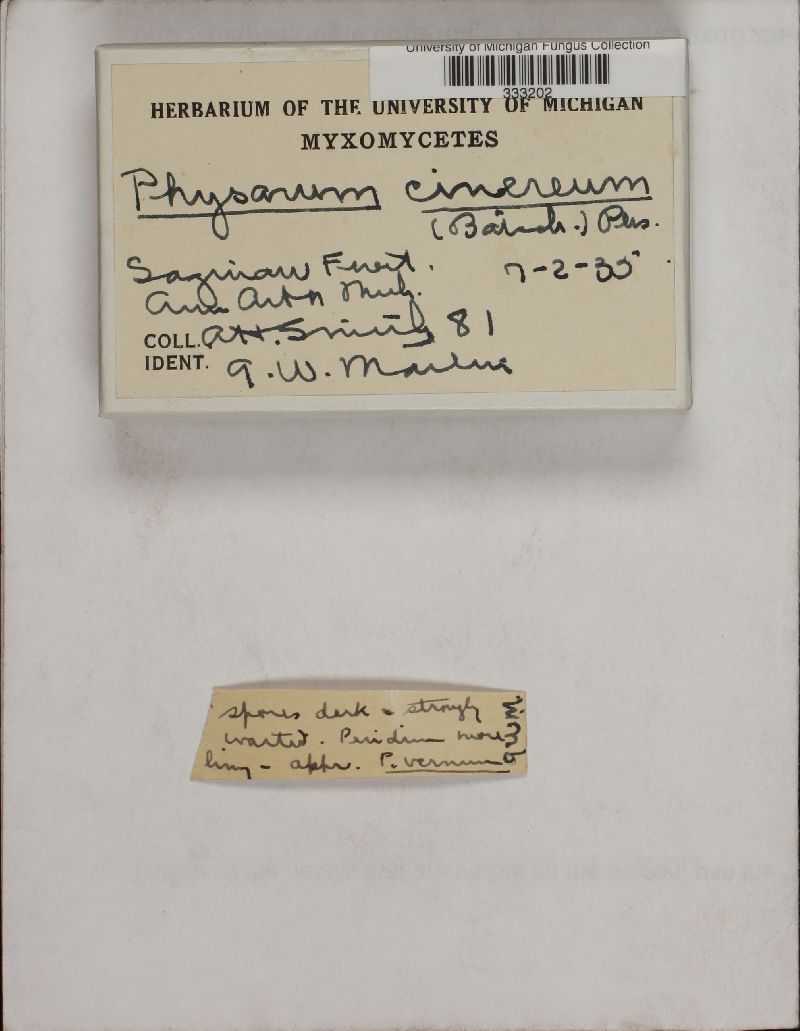 University of Michigan Fungus Collection
333202
HERBARIUM OF THE UNIVERSITY OF MICHIGAN
MYXOMYCETES
Physarum cinereum
(Batsch.) Pers.
Saginaw Forest.
7-2-35
Ann Arbor Mich.
COLL. A.H. Smith 81
IDENT. G.W. Martin
spores dark & strongly
warted. Peridium more
limy - appr. P. vernum
GWM